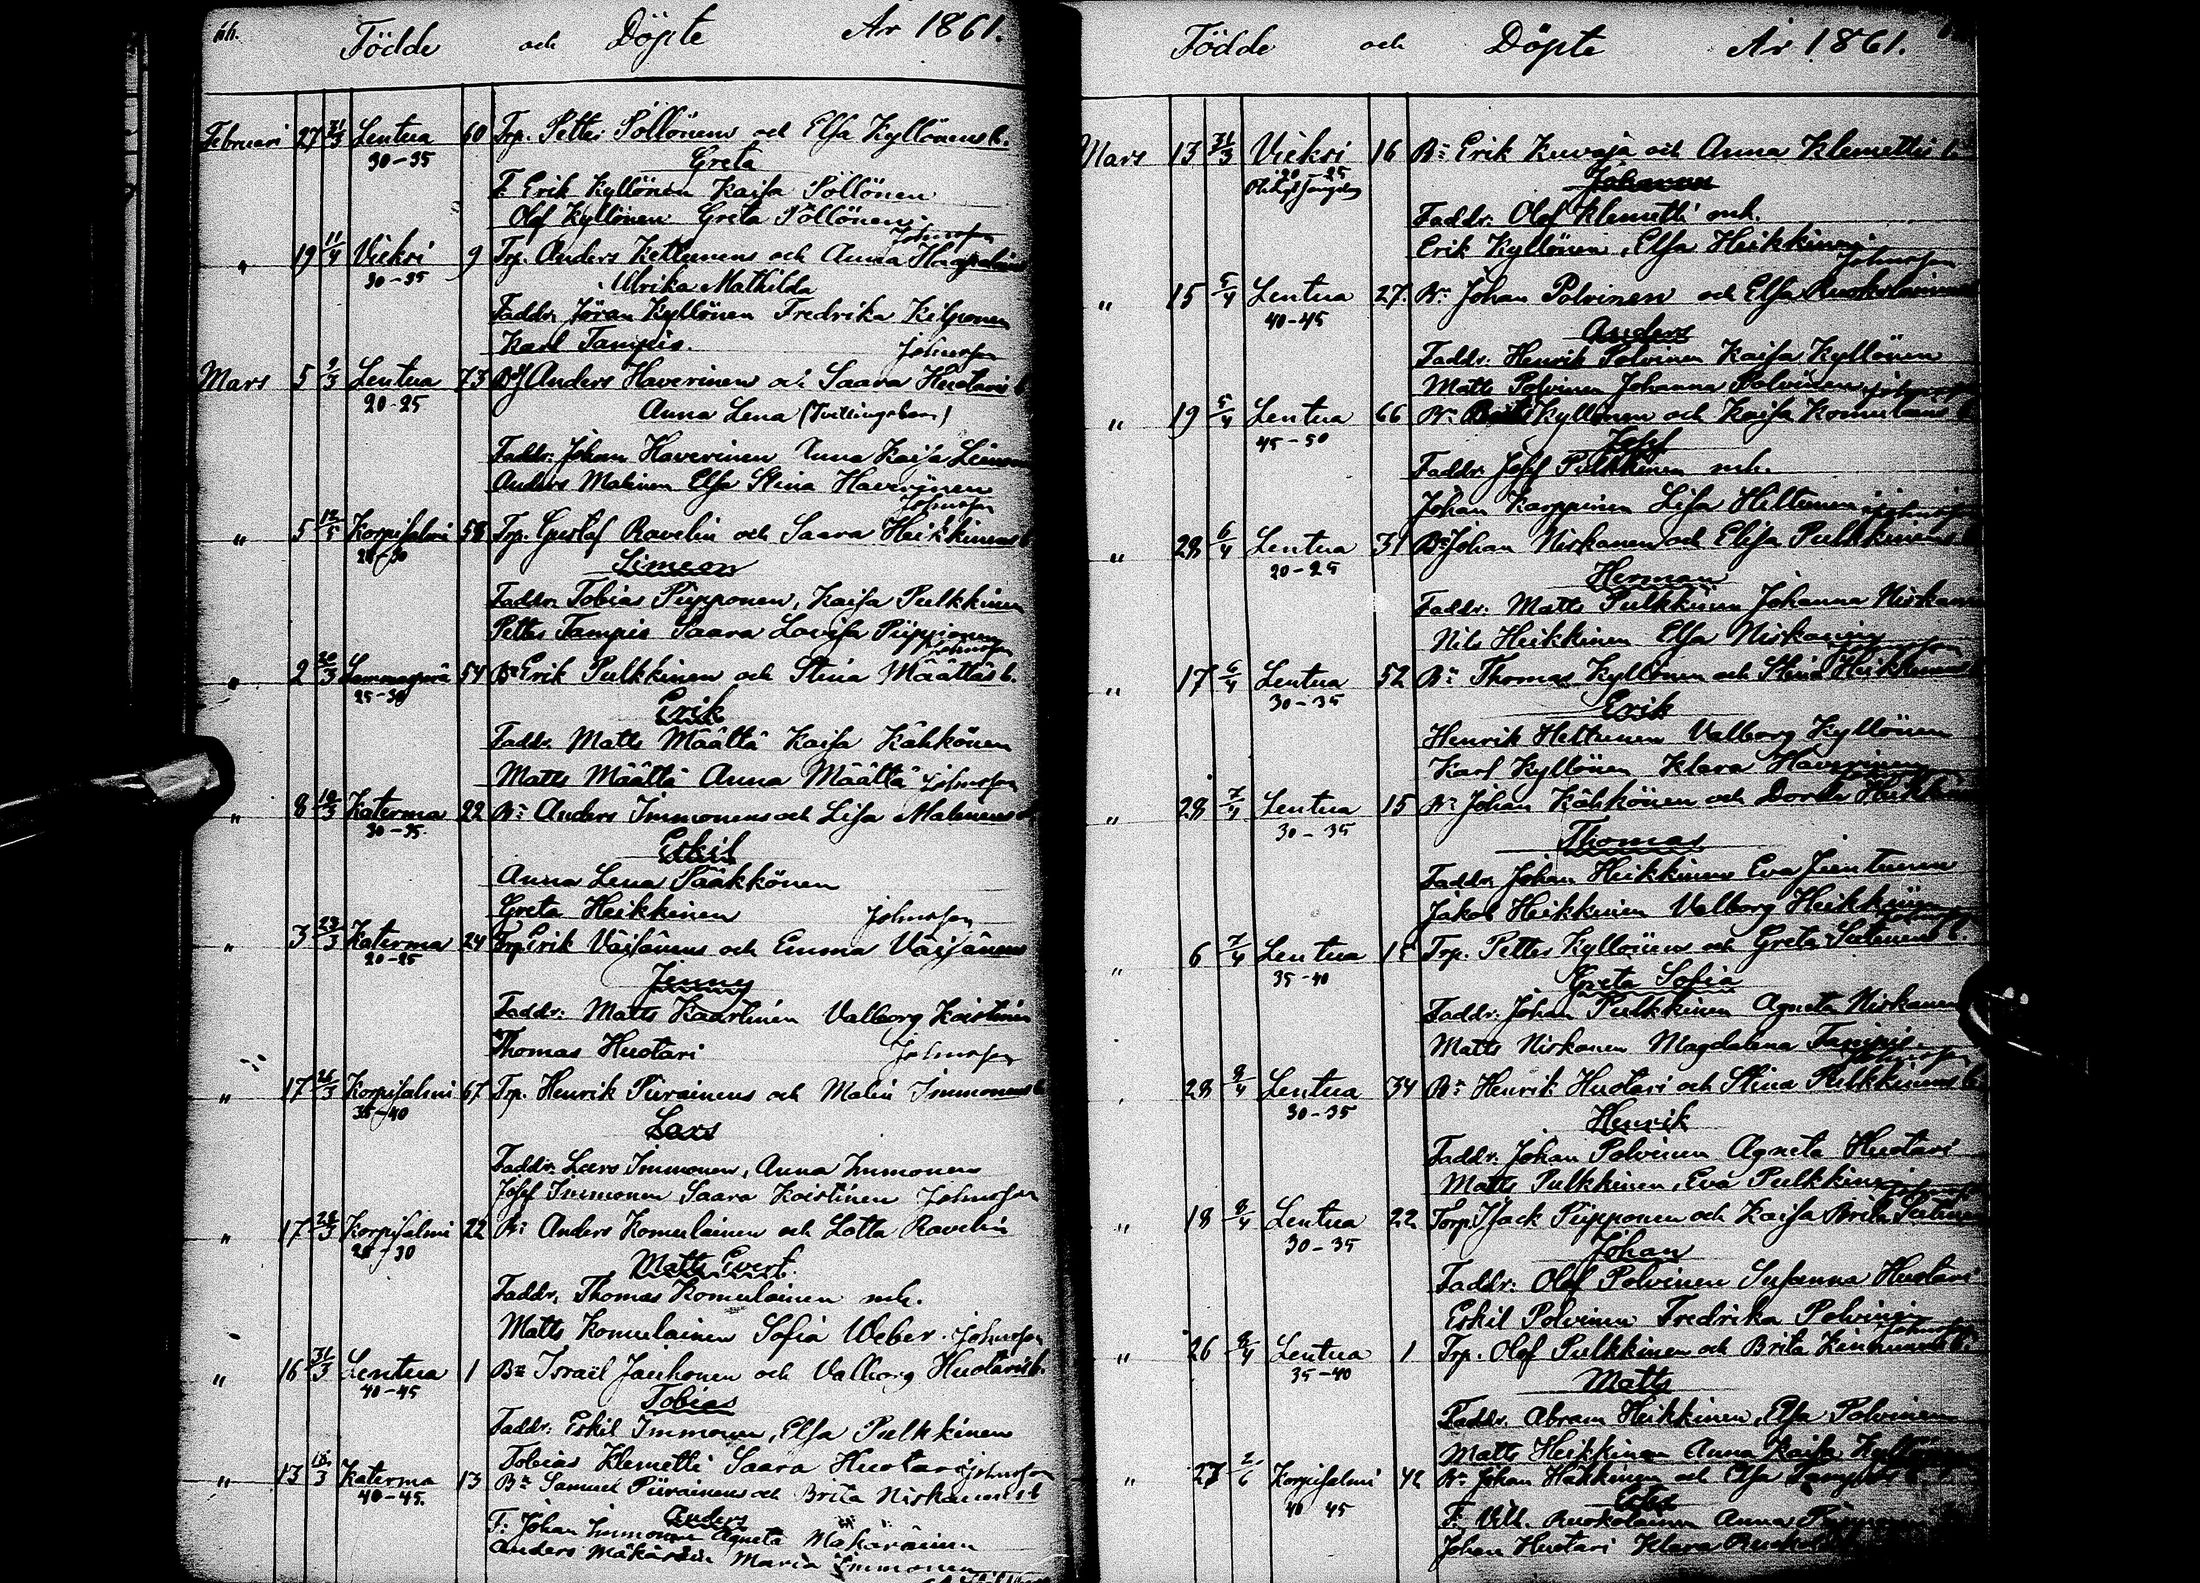 Födde och Döpte År 1861.
Februari 27 31/3 Lentua 60 Trp. Petter Pöllönens och Elsa Kyllönens b.
30-35 Greta
F. Erik Kyllönen Kaisa Pöllönen
Olof Kyllönen Greta Pöllönen
Johnsson
" 19 11/4 Vieksi 9 Trp. Anders Kettunens och Anna
30-35 Ulrika Mathilda
Faddr. Jöran Kyllönen Fredrika Kilponen
Karl Tampio. Johnsson
Mars 5 9/3 Lentua 73 Anders Haverinens och Saara Huotaris b
20-25 Anna Lena (Tvillingebarn)
Faddr: Johan Haverinen Anna Kaisa
Anders Malinen Elsa Stina Haverinen
Johnsson
" 5 12/5 Korpisalmi 58 Trp. Gustaf Ravelin och Saara Heikkinens b
Simeon
Faddr. Tobias Piipponen, Kaisa Pulkkinen
Petter Tampio Saara Lovisa Piipponen
Johnsson
" 2 54 Bn Erik Pulkkinen och Stina Määttäs b.
25-30 Erik
Faddr. Matts Määttä Kaisa Kähkönen
Matts Määttä Anna Määttä Johnsson
" 8 Katerma 22 Bn Anders Immonens och Lisa Malinens
30-35 Eskil
Anna Lena Pääkkönen
Greta Heikkinen Johnsson
" 3 23/3 Katerma 24 Trp Erik Väisänens och Emma Väisänens
20-25 Jenny
Faddr: Matts Kaartinen Valborg Koistinen
Thomas Huotari Johnsson
" 17 26/3 Korpisalmi 67 Trp. Henrik Piirainens och Malin Immonens b
35-40 Lars
Faddr. Lars Immonen, Anna Immonen
Josef Immonen Saara Koistinen Johnsson
" 17 28/3 Korpisalmi 22 Bn Anders Komulainen och Lotta Ravelin
25-30 Matts Evert.
Faddr. Thomas Komulainen mh.
Matts Komulainen Sofia Weber. Johnsson
" 16 31/3 Lentua 1 Bn Israël Jauhonen och Valborg Huotaris b.
40-45 Tobias
Faddr: Eskil Immonen, Elsa Pulkkinen
Tobias Klemetti Saara Huotari Johnsson
" 13 Katerma 13 Bn Samuel Piirainens och Brita Niskanens b
40-45. Anders
F: Johan Immonen Agneta Mäkäräinen
Anders Mäkäräin Maria Immonen
Födde och Döpte År 1861.
Mars 13 31/3 Vieksi 16 Bn Erik Kuvaja och Anna Klemettis b
20-25 Johanna
Faddr. Olof Klemetti mh.
Erik Kyllönen, Elsa Heikkinen
Johnsson
" 15 5/4 Lentua 27. Bn Johan Polvinen och Elsa
40-45 Anders
Faddr. Henrik Polvinen Kaisa Kyllönen
Matts Polvinen Johanna Polvinen Johnsson
" 19 5/4 Lentua 66 Bn Kyllönen och Kaisa Komulains b
45-50 Josef
Faddr. Josef Pulkkinen mh.
Johan Karppinen Lisa Hiltunen Johnsson
" 28 6/4 Lentua 31 Bn Johan Niskanen och Elisa Pulkkinens
20-25 Herman
Faddr: Matts Pulkkinen Johanna Niskanen
Nils Heikkinen Elsa Niskanen
Johnsson
" 17 6/4 Lentua 52 Bn Thomas Kyllönen och Stina Heikkinens
30-35 Erik
Henrik Heltunen Valborg Kyllönen
Karl Kyllönen Klara Haverinen
" 28 7/4 Lentua 15 Bn Johan Kähkönen och
30-35 Thomas
Faddr. Johan Heikkinen Eva Juntunen
Jakob Heikkinen Valborg Heikkinen
" 6 7/4 Lentua 15 Trp. Petter Kyllönen och Greta
35-40 Greta Sofia
Faddr. Johan Pulkkinen Agneta Niskanen
Matts Niskanen Magdalena Tampio.
Johnsson
28 8/4 Lentua 34 Bn Henrik Huotari och Stina Pulkkinens b
30-35 Henrik
Faddr: Johan Polvinen Agneta Huotari
Matts Pulkkinen, Eva Pulkkinen
" 18 8/4 Lentua 22 Torp. Isack Piipponen och Kaisa Brita
30-35 Johan
Faddr: Olof Polvinen Susanna Huotari
Eskil Polvinen Fredrika Polvinen
Johnsson
" 26 8/4 Lentua 1 Trp. Olof Pulkkinen och Brita Kinnunens b.
35-40 Matts
Faddr. Abram Heikkinen, Elsa Polvinen
Matts Heikkinen Anna Kaisa
" 27 2/6 Korpisalmi 42 Bn Johan Hakkinen och Elsa
40 45
F. Vilh. Ruokolainen Anna
Johan Huotari Klara